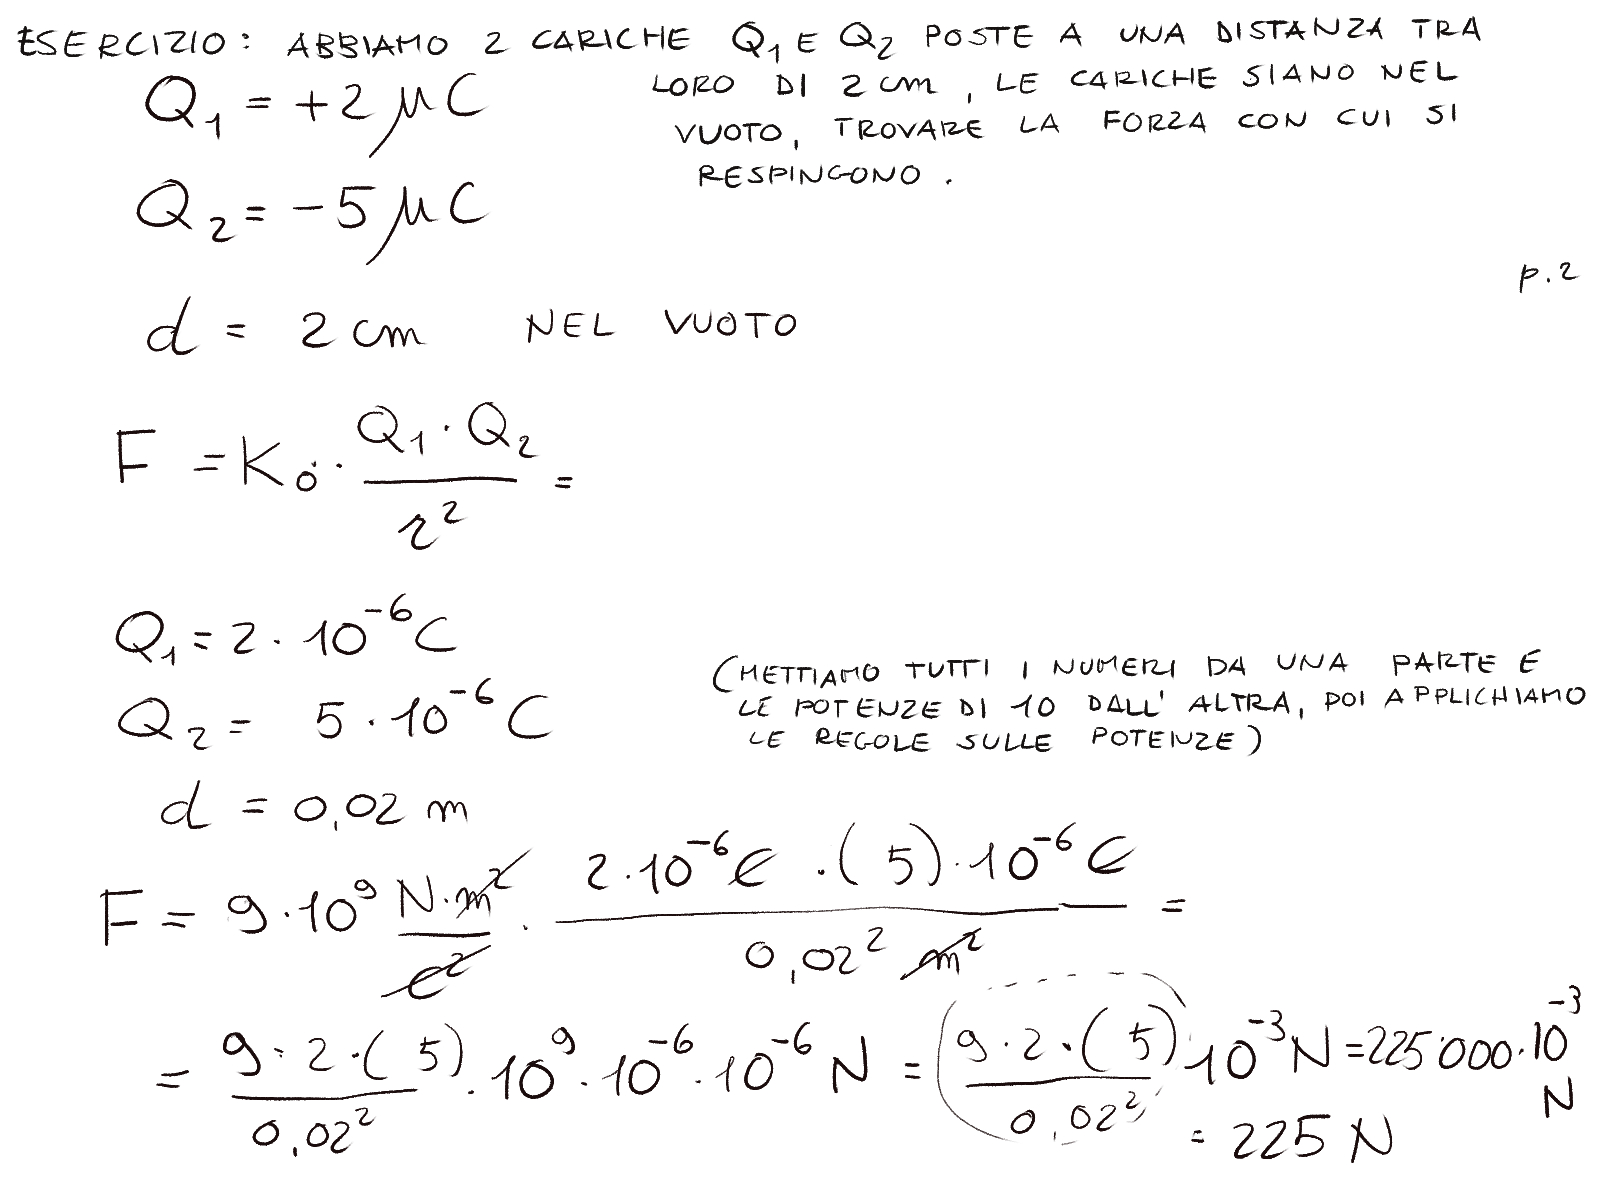 ESERCIZIO: ABBIAMO 2 CARICHE Q₁ E Q₂ POSTE A UNA DISTANZA TRA
LORO DI 2 cm, LE CARICHE SIANO NEL
VUOTO, TROVARE LA FORZA CON CUI SI
RESPINGONO.
Q₁ = +2 μC
Q₂ = -5 μC
p.2
d = 2 cm NEL VUOTO
F = K₀ · (Q₁ · Q₂) / r² =
Q₁ = 2 · 10⁻⁶ C
Q₂ = 5 · 10⁻⁶ C
(METTIAMO TUTTI I NUMERI DA UNA PARTE E
LE POTENZE DI 10 DALL' ALTRA, POI APPLICHIAMO
LE REGOLE SULLE POTENZE)
d = 0,02 m
F = 9 · 10⁹ (N · m²) / C² · (2 · 10⁻⁶ C · (5) · 10⁻⁶ C) / (0,02² m²) =
= (9 · 2 · (5)) / 0,02² · 10⁹ · 10⁻⁶ · 10⁻⁶ N = (9 · 2 · (5)) / 0,02² 10⁻³ N = 225000 · 10⁻³ N
= 225 N